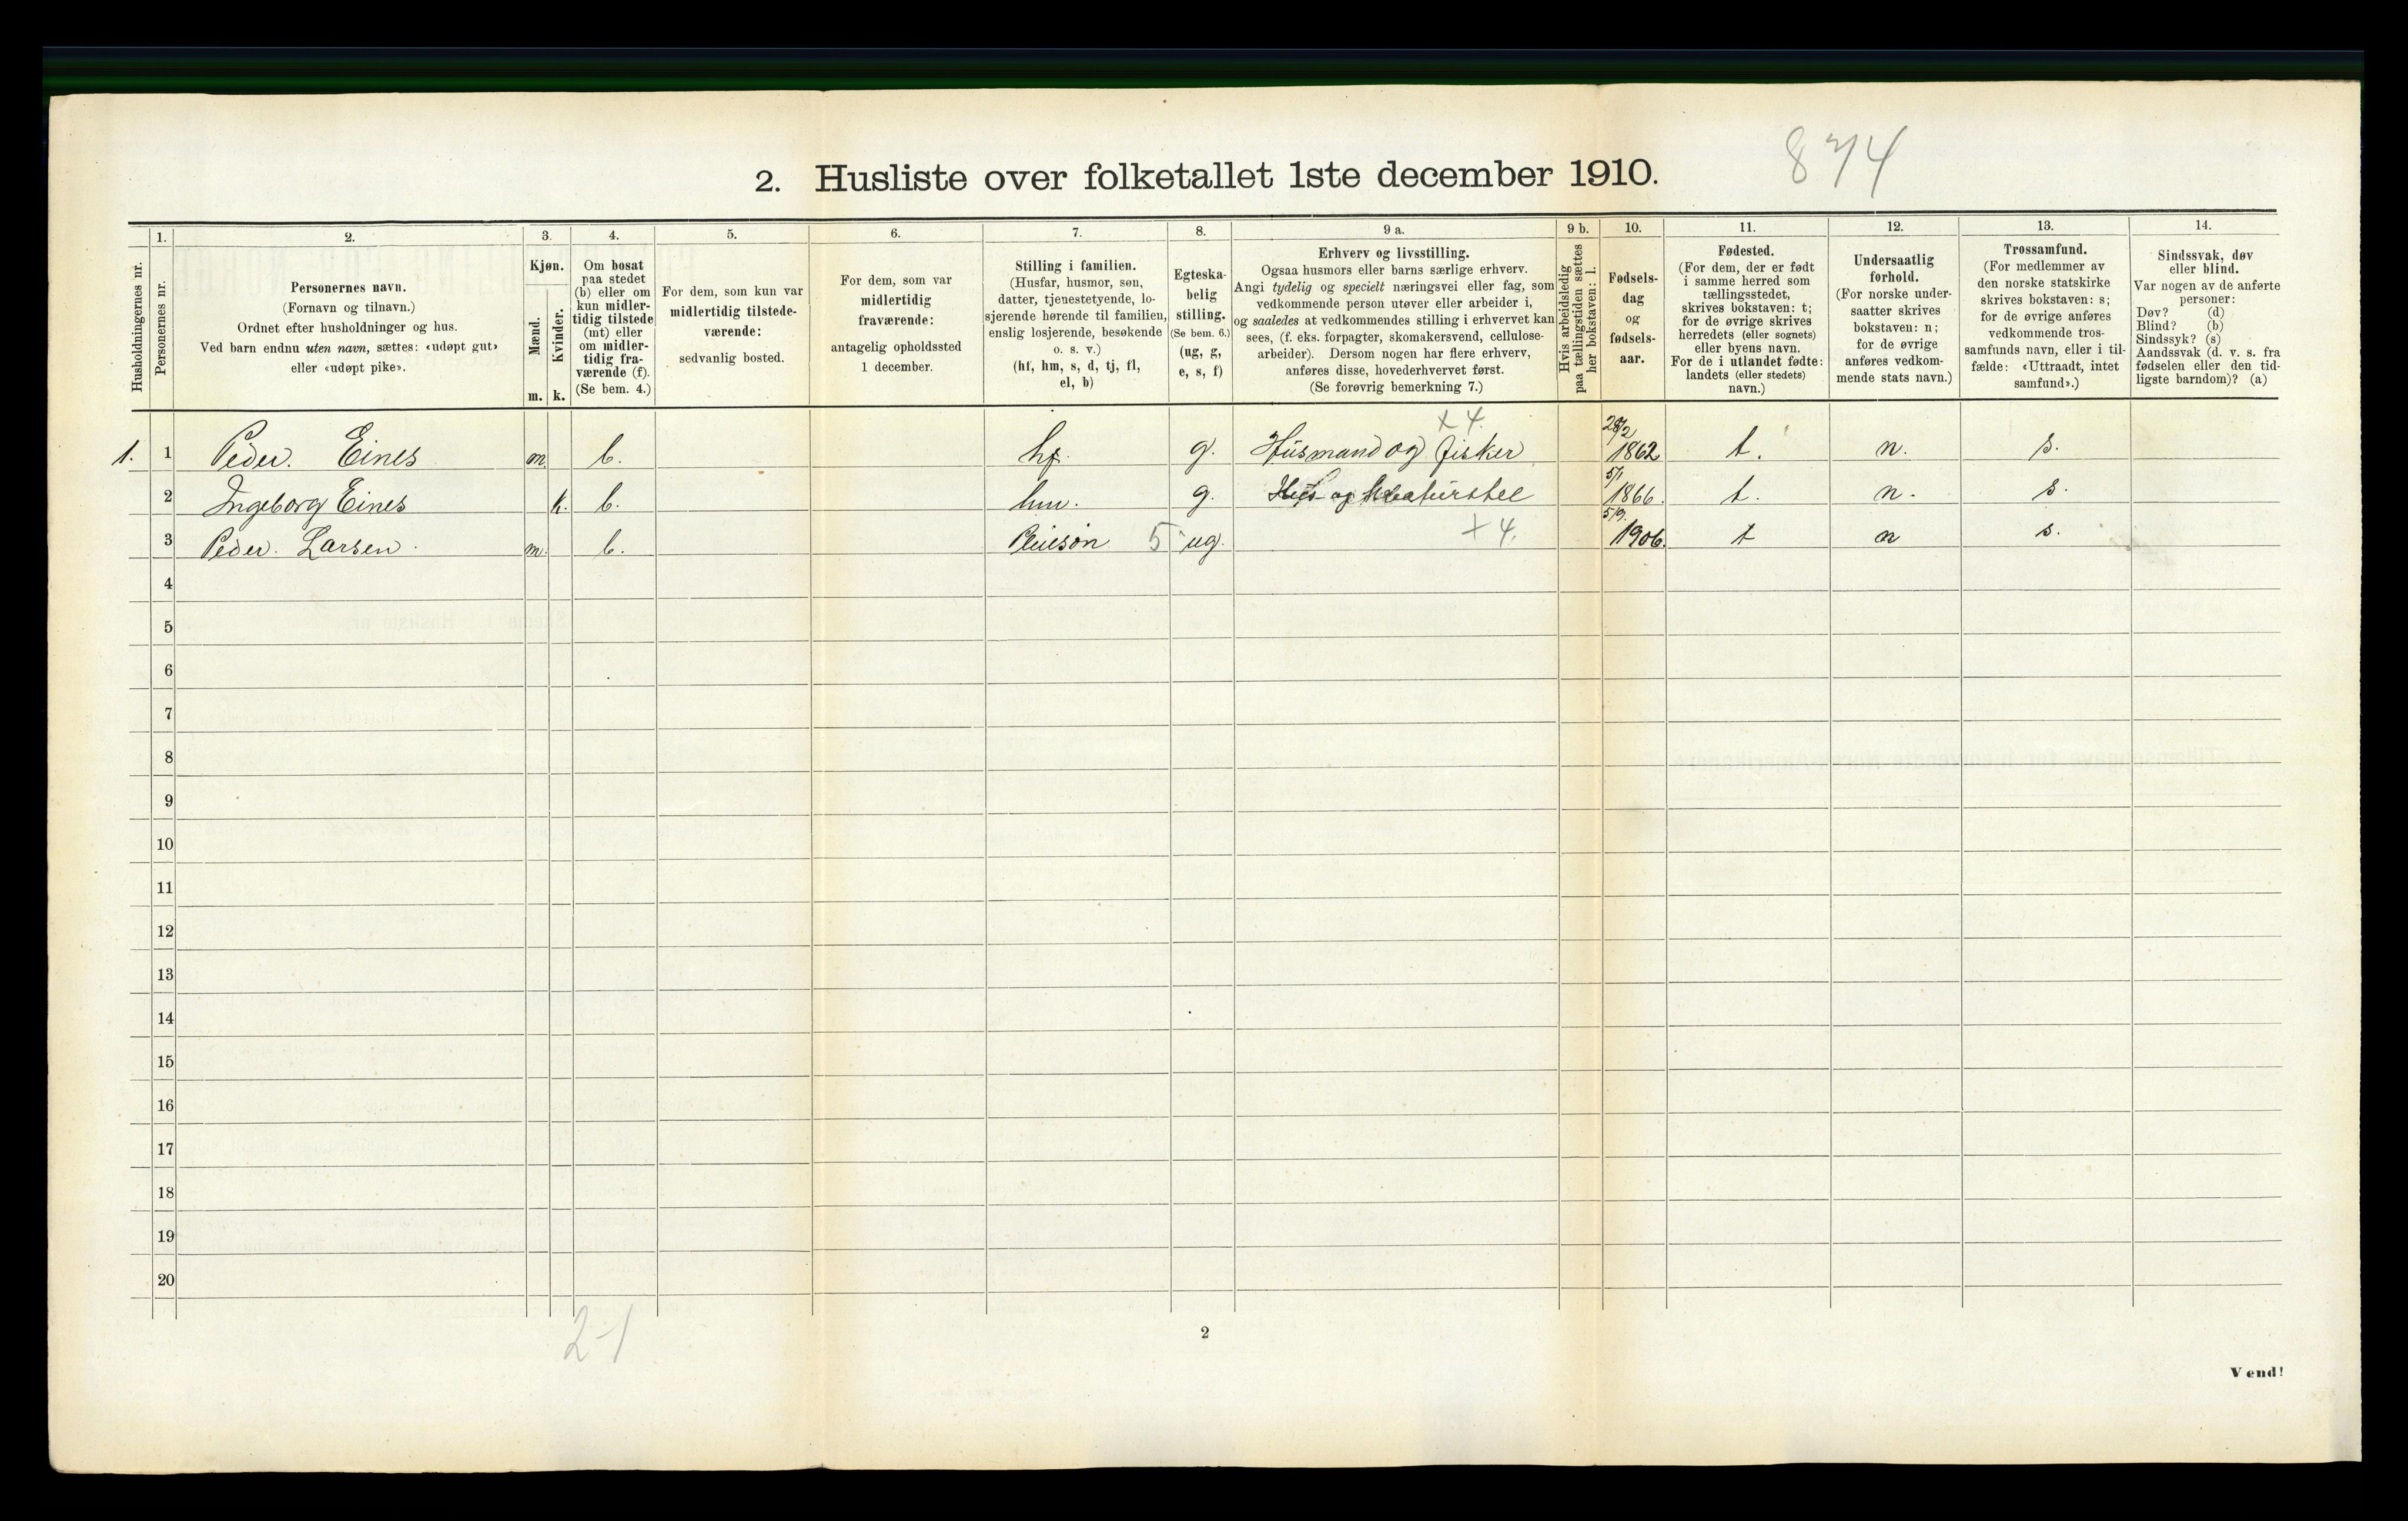 874
2. Husliste over folketallet 1ste december 1910.
Husholdningernes nr.
1.
Personernes nr.
2.
Personernes navn.
(Fornavn og tilnavn.)
Ordnet efter husholdninger og hus.
Ved barn endnu uten navn, sættes: «udøpt gut»
eller «udøpt pike».
3.
Kjøn.
Mænd.
Kvinder.
m. k.
4.
Om bosat
paa stedet
(b) eller om
kun midler-
tidig tilstede
(mt) eller
om midler-
tidig fra-
værende (f).
(Se bem. 4.)
5.
For dem, som kun var
midlertidig tilstede-
værende:
sedvanlig bosted.
6.
For dem, som var
midlertidig
fraværende:
antagelig opholdssted
1 december.
7.
Stilling i familien.
(Husfar, husmor, søn,
datter, tjenestetyende, lo-
sjerende hørende til familien,
enslig losjerende, besøkende
o. s. v.)
(hf, hm, s, d, tj, fl,
el, b)
8.
Egteska-
belig
stilling.
(Se bem. 6.)
(ug, g,
e, s, f)
9 a.
Erhverv og livsstilling.
Ogsaa husmors eller barns særlige erhverv.
Angi tydelig og specielt næringsvei eller fag, som
vedkommende person utøver eller arbeider i,
og saaledes at vedkommendes stilling i erhvervet kan
sees, (f. eks. forpagter, skomakersvend, cellulose-
arbeider). Dersom nogen har flere erhverv,
anføres disse, hovederhvervet først.
(Se forøvrig bemerkning 7.)
9 b.
Hvis arbeidsledig
paa tællingstiden sættes
her bokstaven: l.
10.
Fødsels-
dag
og
fødsels-
aar.
11.
Fødested.
(For dem, der er født
i samme herred som
tællingsstedet,
skrives bokstaven: t;
for de øvrige skrives
herredets (eller sognets)
eller byens navn.
For de i utlandet fødte:
landets (eller stedets)
navn.)
12.
Undersaatlig
forhold.
(For norske under-
saatter skrives
bokstaven: n;
for de øvrige
anføres vedkom-
mende stats navn.)
13.
Trossamfund.
(For medlemmer av
den norske statskirke
skrives bokstaven: s;
for de øvrige anføres
vedkommende tros-
samfunds navn, eller i til-
fælde: «Uttraadt, intet
samfund».)
14.
Sindssvak, døv
eller blind.
Var nogen av de anførte
personer:
Døv? (d)
Blind? (b)
Sindssyk? (s)
Aandssvak (d. v. s. fra
fødselen eller den tid-
ligste barndom)? (a)
x 4.
1. 1 Peder. Eines m b. hf. g. Husmand og fisker 28/2 1862 t. n. s.
2 Ingeborg Eines k. b. hm. g. Hus- og 5/1 1866. t. n. s.
3 Peder. Larsen. m. b. Pleiesøn 5 ug. x 4. 5/9. 1906. t n s.
4
5
6
7
8
9
10
11
12
13
14
15
16
17
18
19
20
2-1
2
Vend!